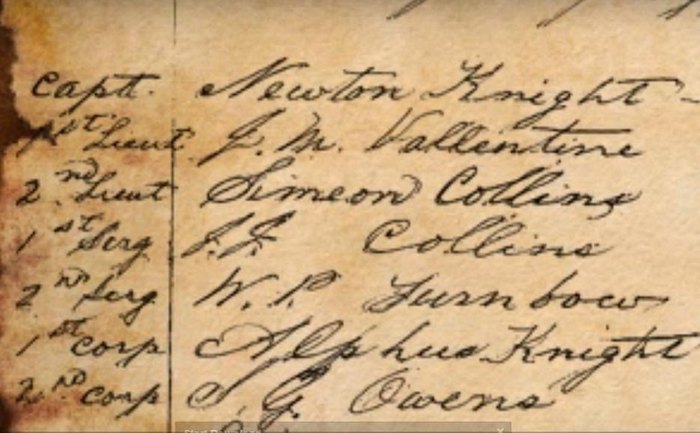 Capt. Newton Knight
1st Lieut J. M. Vallentine
2nd Lieut Simeon Collins
1st Serg J. J. Collins
2nd Serg W. P. Turnbow
1st Corp Alpheus Knight
2nd Corp S. G. Owens